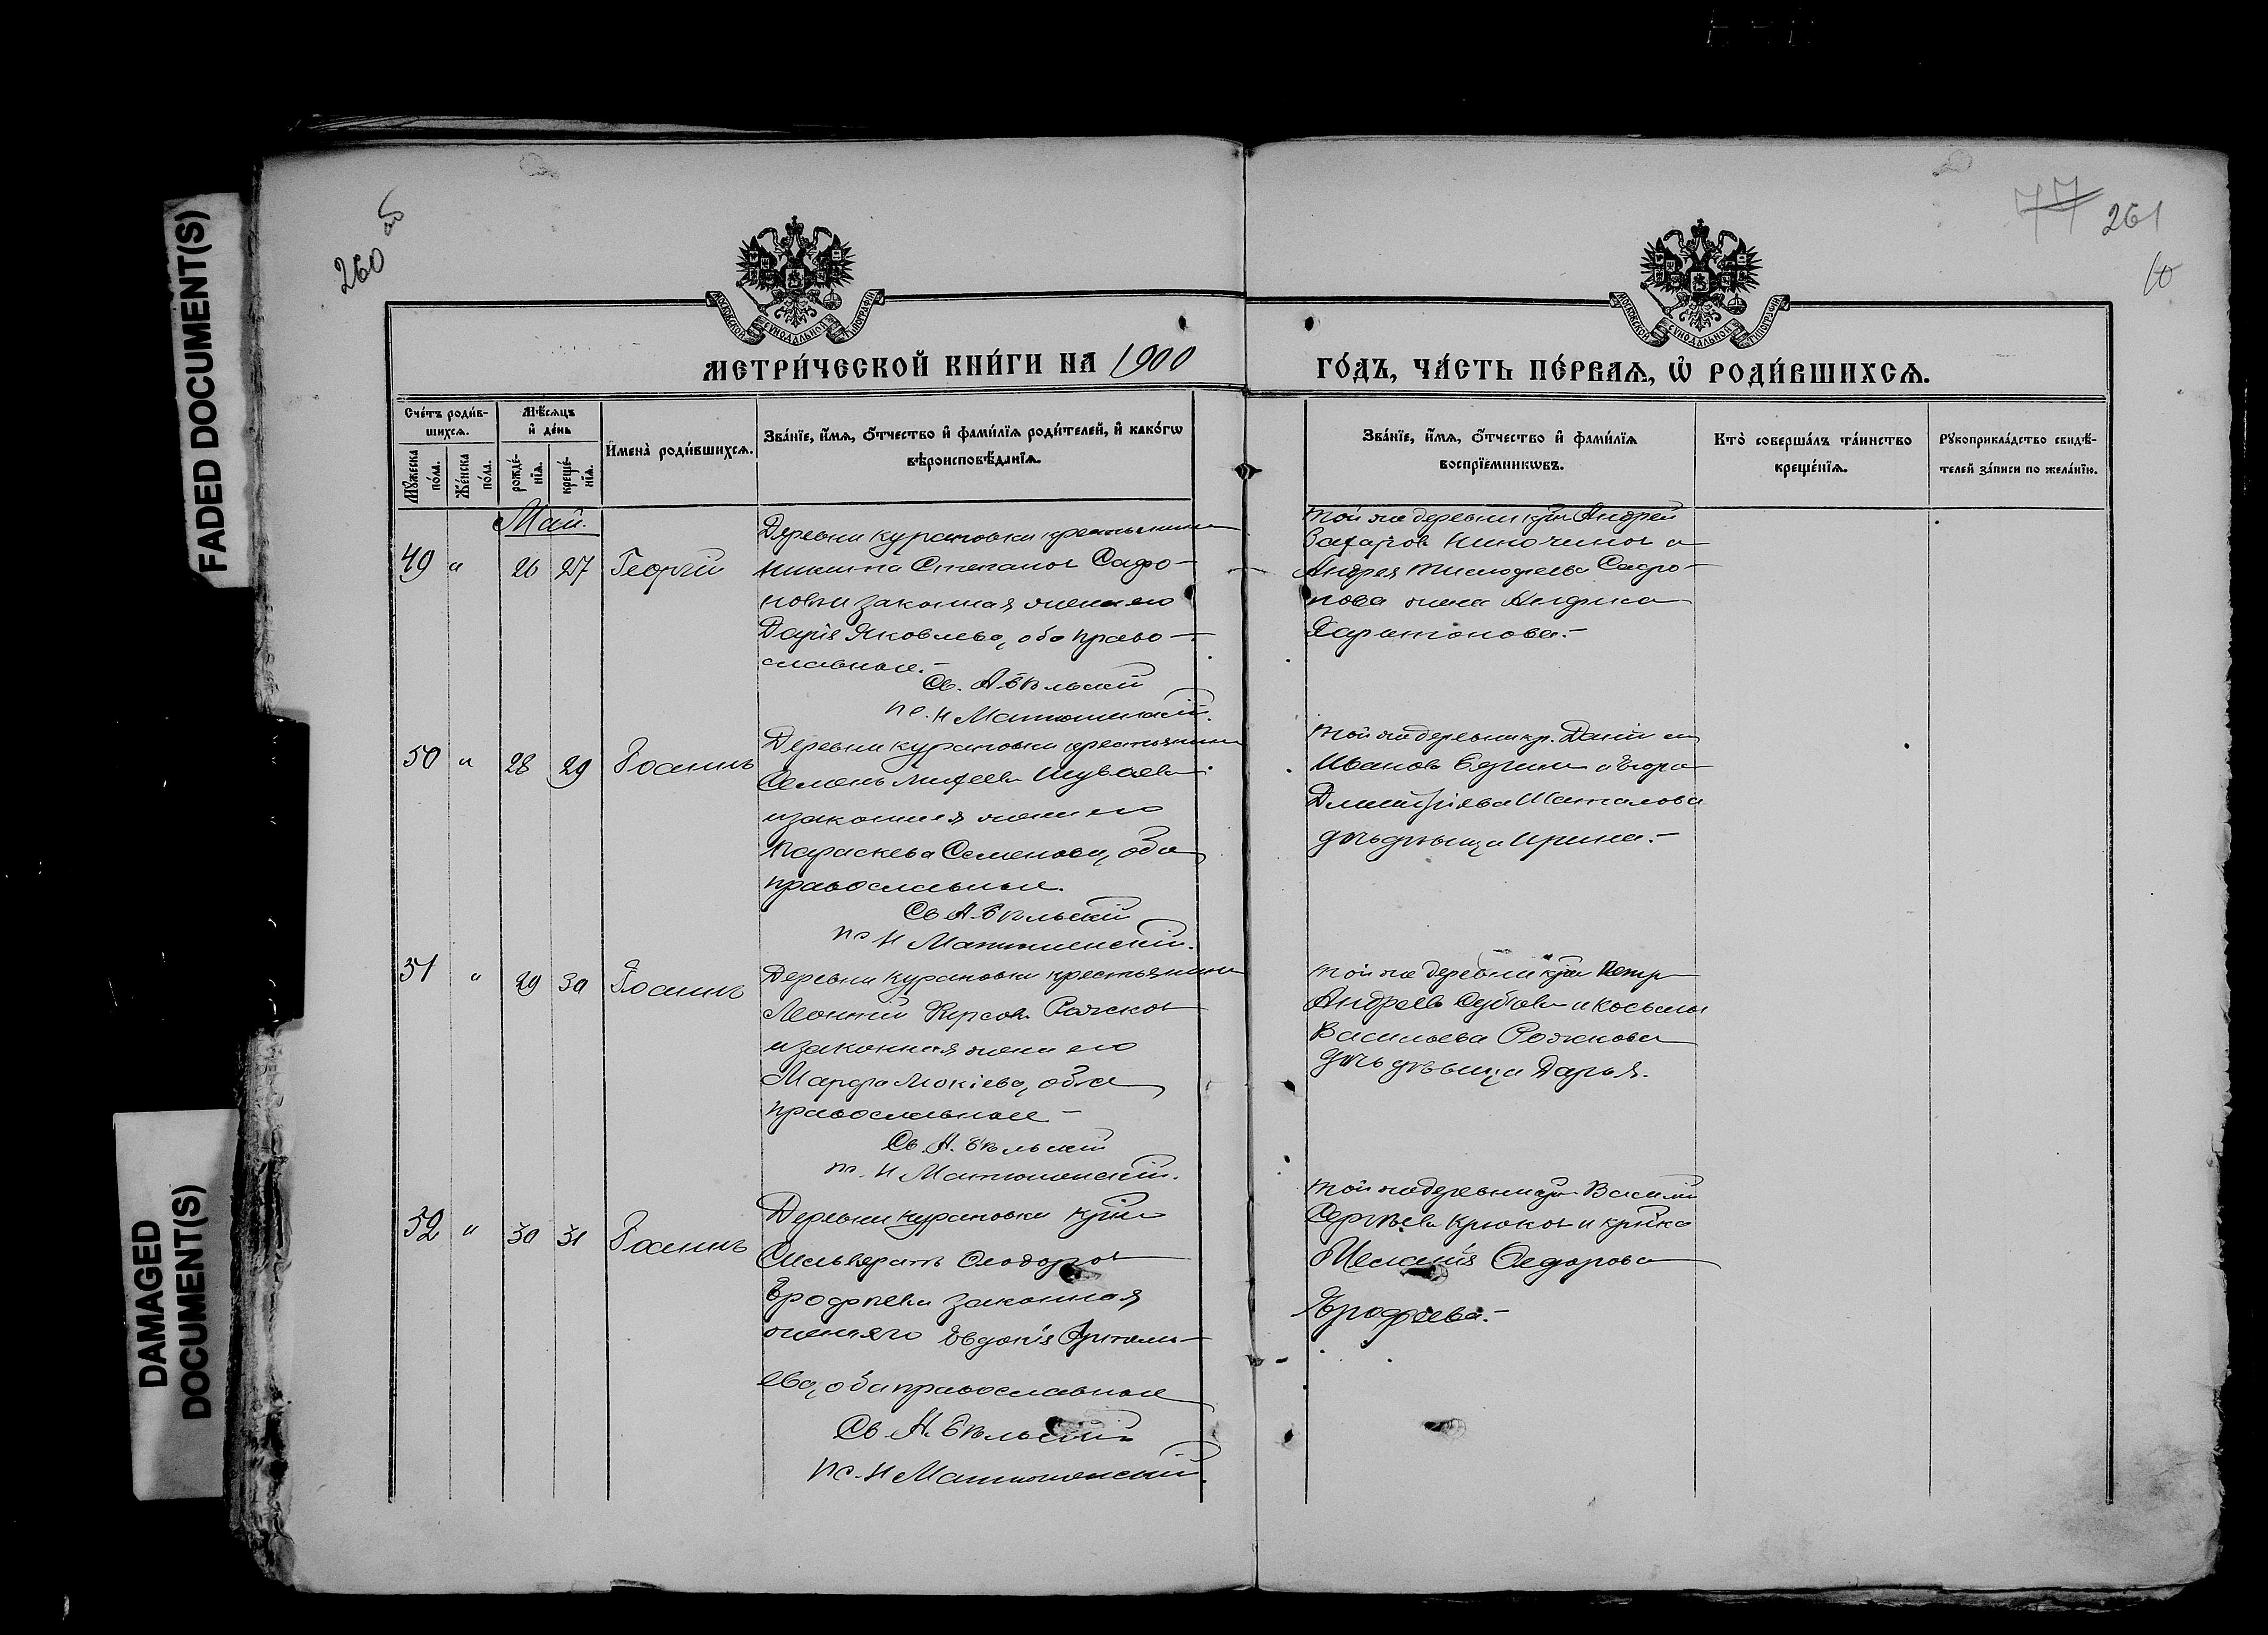 FADED DOCUMENT(S)
DAMAGED
DOCUMENT(S)
260 об
77 261
10
МОСКОВСКОЙ СѴНОДАЛЬНОЙ ТИПОГРАФІИ
МОСКОВСКОЙ СѴНОДАЛЬНОЙ ТИПОГРАФІИ
МЕТРИ́ЧЕСКОЙ КНИ́ГИ НА 1900
ГО́ДЪ, ЧА́СТЬ ПЕ́РВАѦ, Ѡ РОДИ́ВШИХСѦ.
Сче́тъ роди́в-
шихсѧ.
Мѣ́сѧцъ
и҆ де́нь
Мꙋ́жеска
по́ла.
Же́нска
по́ла.
рожде́-
нїѧ.
креще́-
нїѧ.
И҆мена̀ роди́вшихсѧ.
Зва́нїе, и҆́мѧ, ѻ҆́тчество и҆ фами́лїѧ роди́телей, и҆ како́гѡ
вѣроисповѣ́данїѧ.
Зва́нїе, и҆́мѧ, ѻ҆́тчество и҆ фами́лїѧ
воспрїе́мникѡвъ.
Кто̀ соверша́лъ та́инство
креще́нїѧ.
Рꙋкоприкла́дство свидѣ́-
телей за́писи по жела́нїю.
Май.
49 " 26 27 Георгій
Деревни Курановки крестьянинъ
Никита Степановъ Сафо-
новъ и законная жена его
Дарія Яковлева, оба право-
славные.-
Св. А. Бѣльскій
пс. Н Матюшенскій.
той же деревни крн Андрей
Захаровъ и
Андрея Тимофеева Сафо-
нова жена Анфиса
Харитонова.-
50 " 28 29 Іоаннъ
Деревни Курановки крестьянинъ
Семенъ Михеевъ Шуваевъ
и законная жена его
Параскева Семенова, оба
православные.
Св А. Бѣльскій
пс Н Матюшенскій.
той же деревни кр. Даніилъ
Ивановъ и Егора
Димитріева Шаталова
дочь дѣвица Ирина.-
51 " 29 30 Іоаннъ
Деревни Курановки крестьянинъ
Леонтій Фирсовъ Рожковъ
и законная жена его
Марфа Мокіева, оба
православные -
Св. А. Бѣльскій
пс. Н Матюшенскій.
той же деревни крн Петръ
Андреевъ и Косьмы
Васильева Рожкова
дочь дѣвица Дарья.
52 " 30 31 Іоаннъ
Деревни Курановки крнъ
Феодоровъ
Ерофѣевъ и законная
жена его Евдокія
ева, оба православные
Св. А. Бѣльскій
пс. Н Матюшенскій.
той же деревни крн Василій
Сергѣевъ Крюковъ и крнка
Меланія Федорова
Ерофѣева.-